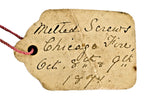 Melted Screws
Chicago Fire
Oct. 8th & 9th
1871.